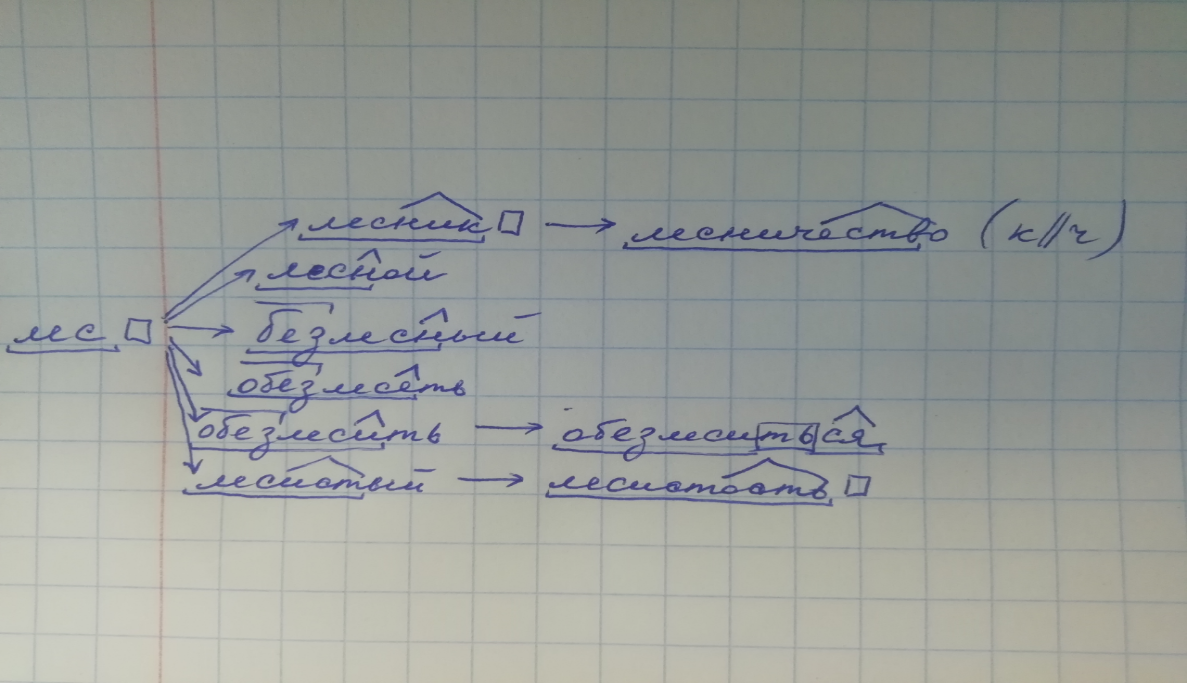 лесник → лесничество (к//ч)
лесной
лес → безлесный
обезлесеть
обезлесить → обезлеситься
лесистый → лесистость